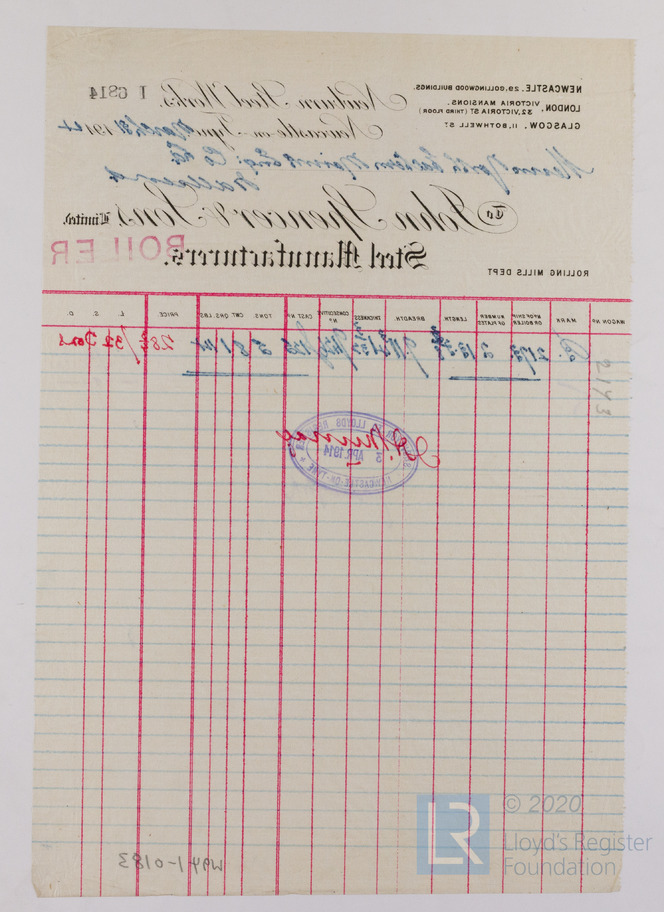 NEWCASTLE, 29, COLLINGWOOD BUILDINGS.
LONDON, VICTORIA MANSIONS, 32, VICTORIA ST (THIRD FLOOR)
GLASGOW, 11, BOTHWELL ST
Newburn Steel Works,
I 6814
Newcastle-on-Tyne March 31 1914
Messrs North Eastern Marine Eng. Co Ld.
Wallsend
To John Spencer & Sons, Limited.
Steel Manufacturers.
BOILER
ROLLING MILLS DEPT
WAGON No MARK No OF SHIP OR BOILER NUMBER OF PLATES LENGTH. BREADTH. THICKNESS CONSECUTIVE No CAST No TONS. CWT QRS. LBS. PRICE. L. S. D.
2173 2 28/32 Tons
2143
LLOYDS
3 APR. 1914
NEWCASTLE-ON-TYNE
Murray
W941-0183
LR
© 2020
Lloyd's Register
Foundation